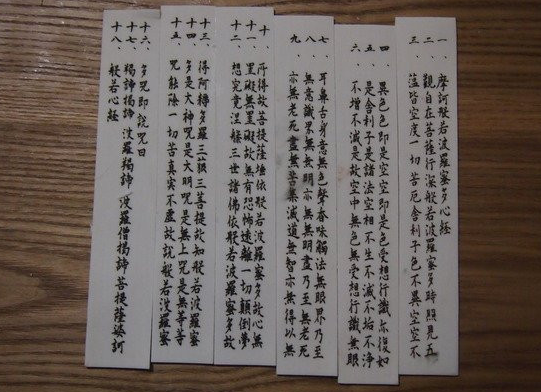 一、摩訶般若波羅蜜多心経
二、觀自在菩薩行深般若波羅蜜多時照見五
三、蘊皆空度一切苦厄舍利子色不異空空不
四、異色色即是空空即是色受想行識亦復如
五、是舍利子是諸法空相不生不滅不垢不浄
六、不增不滅是故空中無色無受想行識無眼
七、耳鼻舌身意無色聲香味觸法無眼界乃至
八、無意識界無無明亦無無明盡乃至無老死
九、亦無老死盡無苦集滅道無智亦無得以無
十、所得故菩提薩埵依般若波羅蜜多故心無
十一、罣礙無罣礙故無有恐怖遠離一切顛倒夢
十二、想究竟涅槃三世諸佛依般若波羅蜜多故
十三、得阿耨多羅三藐三菩提故知般若波羅蜜
十四、多是大神咒是大明咒是無上咒是無等等
十五、咒能除一切苦真実不虚故説般若波羅蜜
十六、多咒即説咒曰
十七、羯諦羯諦 波羅羯諦 波羅僧羯諦 菩提薩婆訶
十八、般若心経